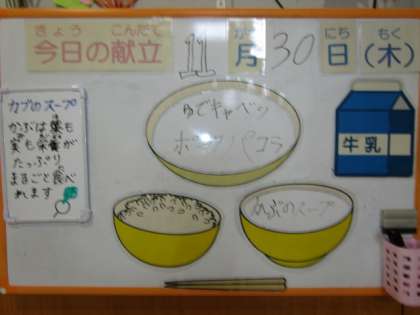 きょう こんだて
今日の献立 11 月 30 日 (木)
がつ にち もく
カブのスープ
かぶは葉も
実も栄養が
たっぷり。
まるごと食べ
れます
ゆでキャベツ
ポークパプリカ
牛乳
かぶのスープ